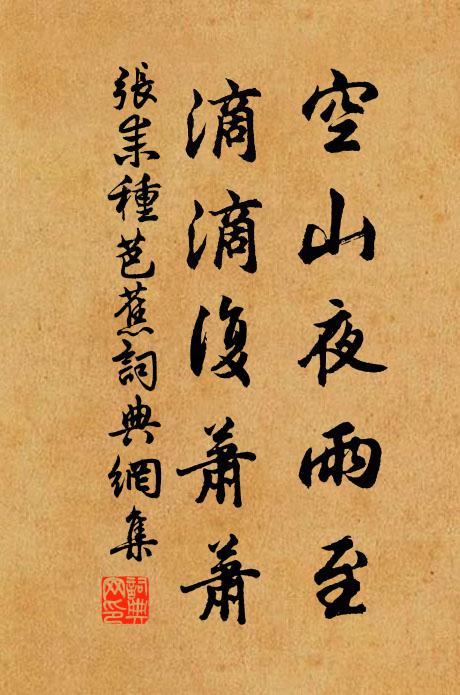 空山夜雨至
滴滴復蕭蕭
張耒種芭蕉詞典網集
詞典网印